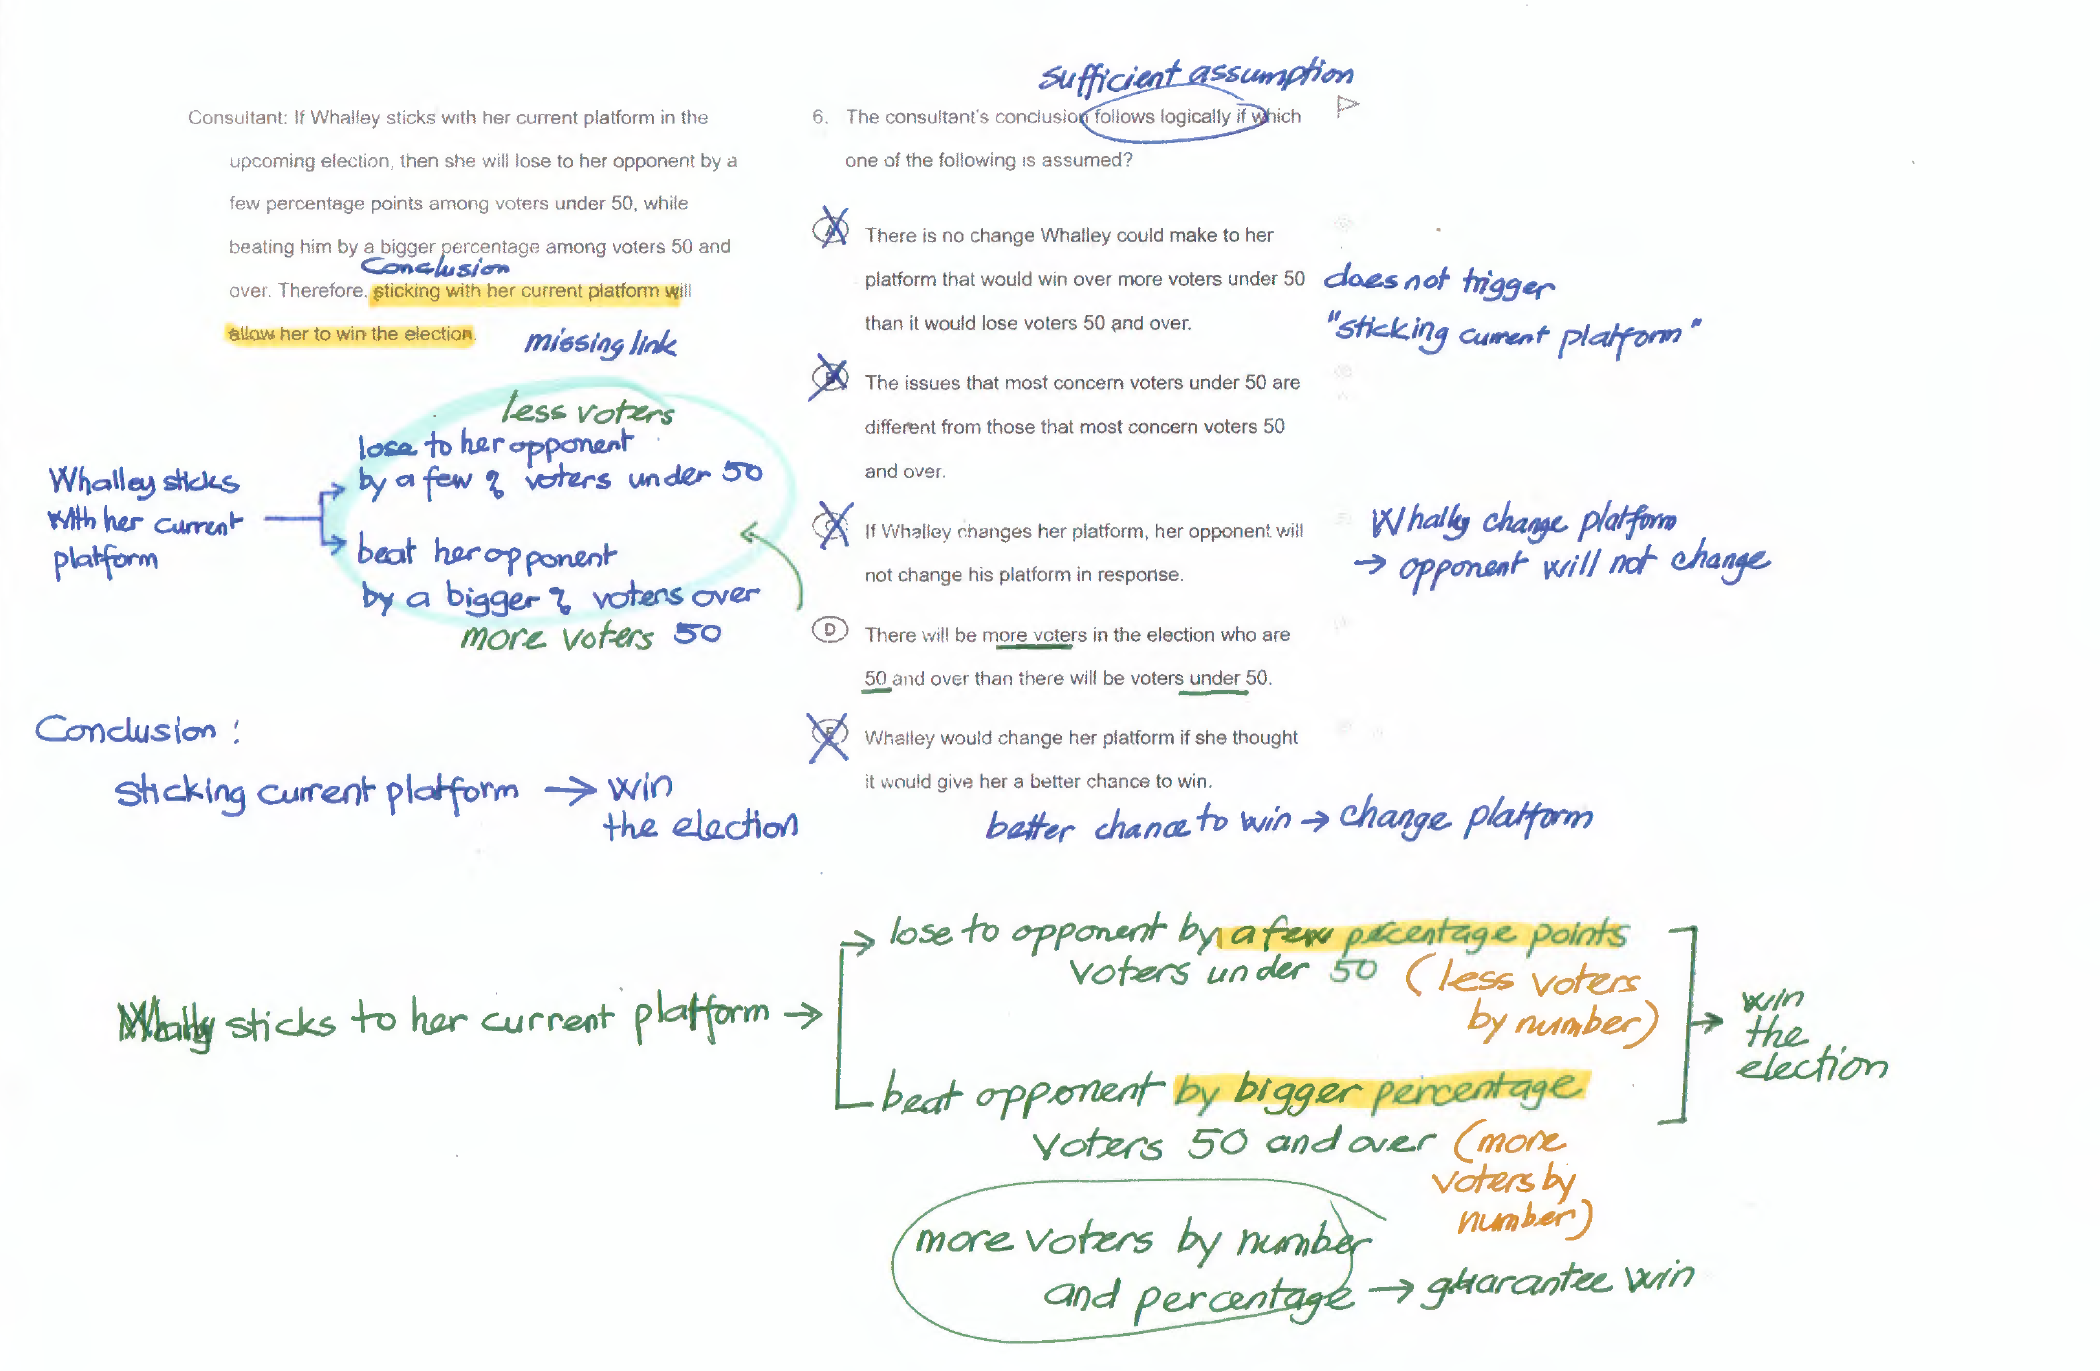 sufficient assumption
Consultant: If Whalley sticks with her current platform in the
upcoming election, then she will lose to her opponent by a
few percentage points among voters under 50, while
beating him by a bigger percentage among voters 50 and
Conclusion
over. Therefore, sticking with her current platform will
allow her to win the election.
missing link
less voters
lose to her opponent
by a few % voters under 50
Whalley sticks
with her current
platform
beat her opponent
by a bigger % voters over
more voters 50
Conclusion :
sticking current platform → win
the election
6. The consultant's conclusion follows logically if which
one of the following is assumed?
A There is no change Whalley could make to her
platform that would win over more voters under 50
than it would lose voters 50 and over.
does not trigger
"sticking current platform"
B The issues that most concern voters under 50 are
different from those that most concern voters 50
and over.
C If Whalley changes her platform, her opponent will
not change his platform in response.
Whally change platform
→ opponent will not change
D There will be more voters in the election who are
50 and over than there will be voters under 50.
E Whalley would change her platform if she thought
it would give her a better chance to win.
better chance to win → change platform
Whally sticks to her current platform →
→ lose to opponent by a few percentage points
voters under 50 (less voters
by number)
beat opponent by bigger percentage
voters 50 and over (more
voters by
number)
→ win
the
election
more voters by number
and percentage → guarantee win